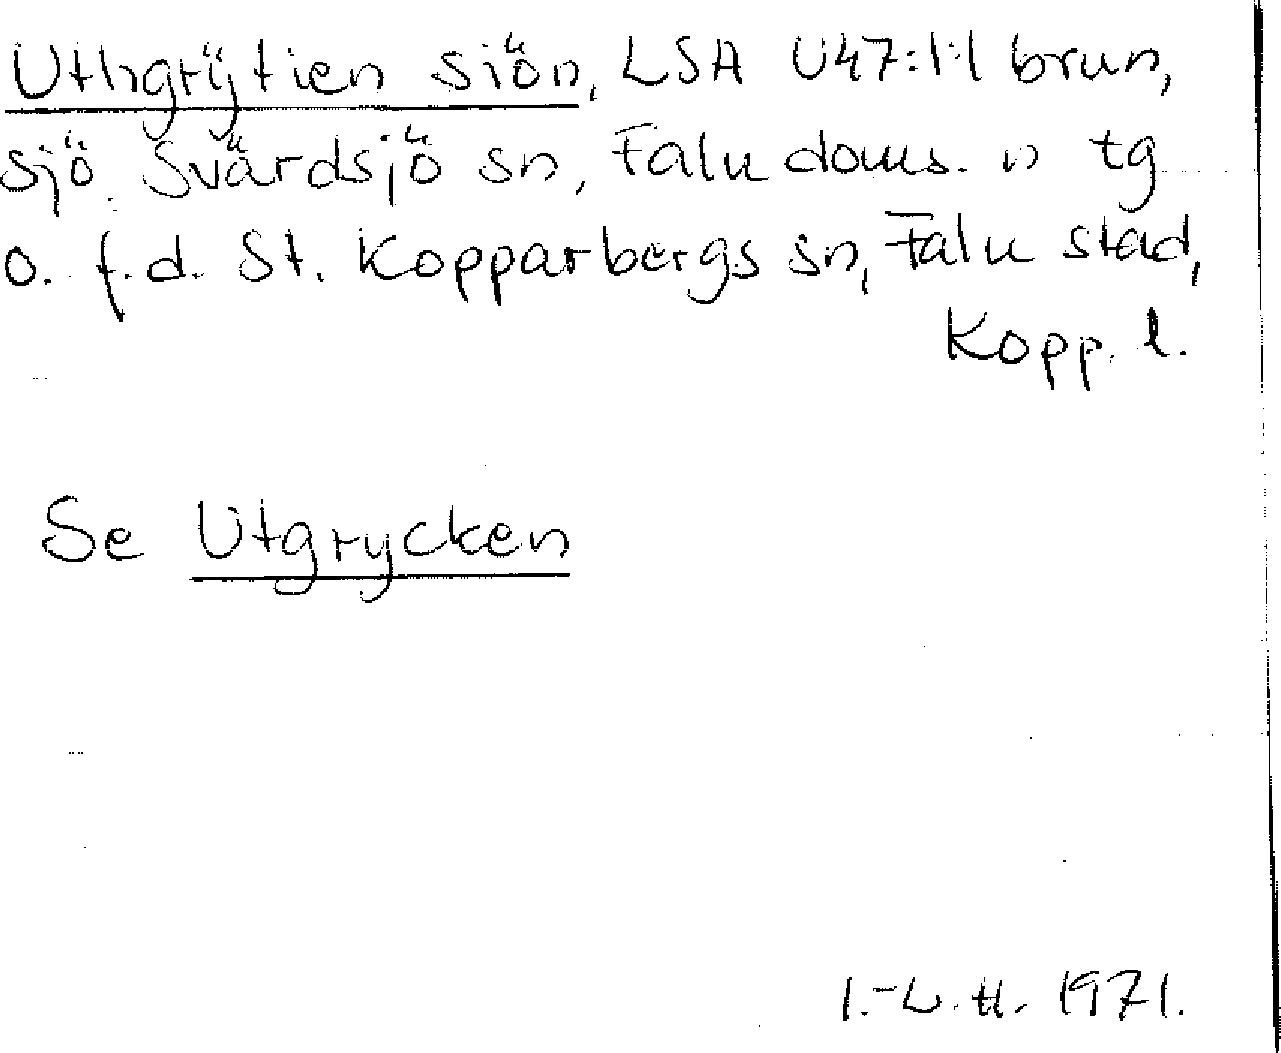 Uthgrÿtien siön, LSA U47:1:1 brun,
sjö. Svärdsjö sn, Falu doms. n tg
o. f.d. St. Kopparbergs sn, Falu stad,
Kopp. l.
Se Utgrycken
I.-L.H. 1971.